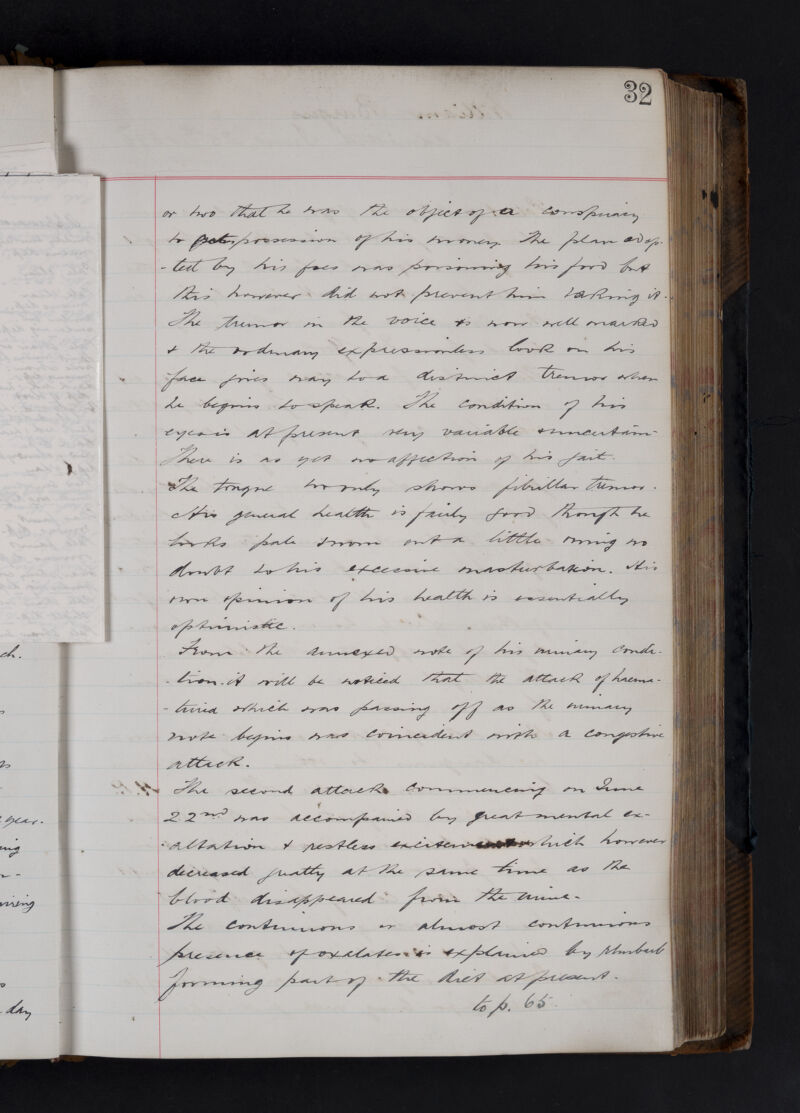 32
or two that he was the object of a conspiracy
to get possession of his money. The plan adop-
-ted by his foes was poisoning his food but
this however did not prevent him taking it.
The tremor in the voice is now well marked
& the ordinary expressionless look on his
face gives way to a distinct tremor when
he begins to speak. The condition of his
eyes is at present very variable & uncertain.
There is as yet no affection of his gait.
The tongue too only shows fibrillar tremor.
His general health is fairly good though he
looks pale & worn out a little owing no
doubt to his excessive masturbation. His
own opinion of his health is essentially
optimistic.
From the annexed note of his urinary condi-
-tion it will be noticed that the attack of haema-
-turia which was passing off as the urinary
note begins was coincident with a congestive
attack.
The second attack commencing on June
22nd was accompanied by great mental ex-
-altation & restless excitement which however
decreased greatly at the same time as the
blood disappeared from the urine.
The continuous or almost continuous
presence of oxalates is explained by rhubarb
forming part of the diet at present.
to p. 65
ch.
year.
day